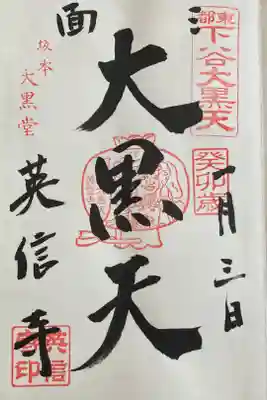 東都
下谷大黒天
三面
大黒天
癸卯歳
一月三日
坂本
大黒堂
英信寺
英信寺印